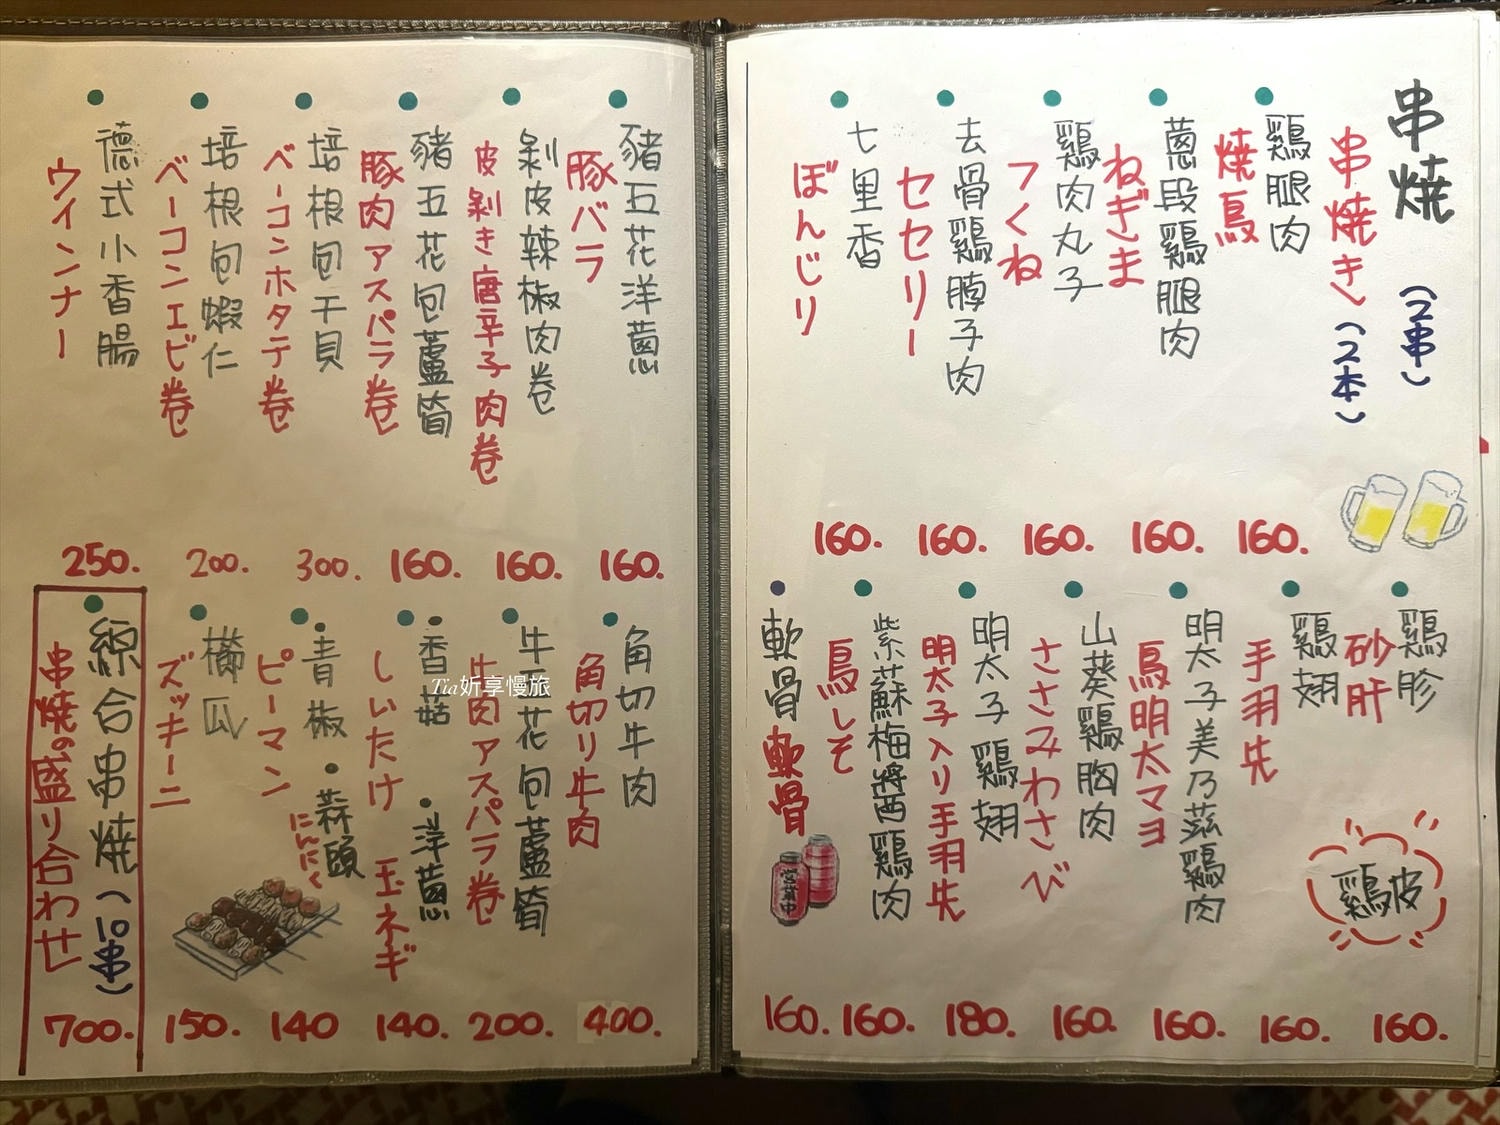 串燒 (2串)
串燒き (2本)
鷄腿肉
燒鳥
160.
蔥段鷄腿肉
ねぎま
160.
鷄肉丸子
つくね
160.
去骨鷄脖子肉
セセリー
160.
七里香
ぼんじり
160.
鷄胗
砂肝
160.
鷄翅
手羽先
160.
明太子美乃滋鷄肉
鳥明太マヨ
160.
山葵鷄胸肉
ささみわさび
160.
明太子鷄翅
明太子入り手羽先
180.
紫蘇梅醬鷄肉
鳥しそ
160.
軟骨
軟骨
160.
鷄皮
營業中
豬五花洋蔥
豚バラ
160.
剝皮辣椒肉卷
皮剝き唐辛子肉卷
160.
豬五花包蘆筍
豚肉アスパラ卷
160.
培根包干貝
ベーコンホタテ卷
300.
培根包蝦仁
ベーコンエビ卷
200.
德式小香腸
ウインナー
250.
角切牛肉
角切り牛肉
400.
牛五花包蘆筍
牛肉アスパラ卷
200.
・香菇 ・洋蔥
しいたけ 玉ネギ
140.
・青椒 ・蒜頭
ピーマン にんにく
140
櫛瓜
ズッキーニ
150.
綜合串燒 (10串)
串燒の盛り合わせ
700.
Tia妡享慢旅